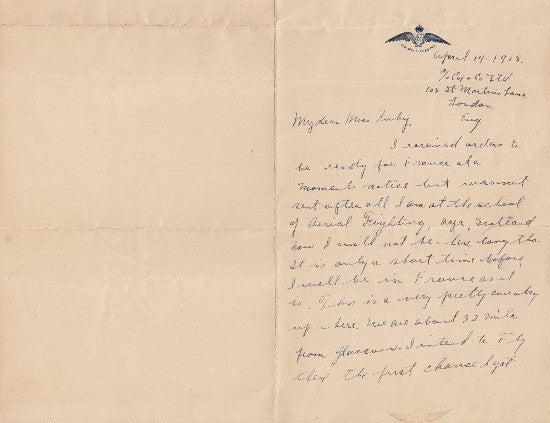 April 14-1918.
c/o Cox & Co Ltd
103 St Martins Lane.
London
My dear Miss Ruby, Eng
I received orders to
be ready for France at a
moments notice but was not
sent after all I am at the school
of Aerial Fighting, Ayr, Scotland
now I will not be here long tho
It is only a short time before
I will be in France as it
is. This is a very pretty country
up here. We are about 32 mile
from Glascow. I intend to fly
the first chance I get.